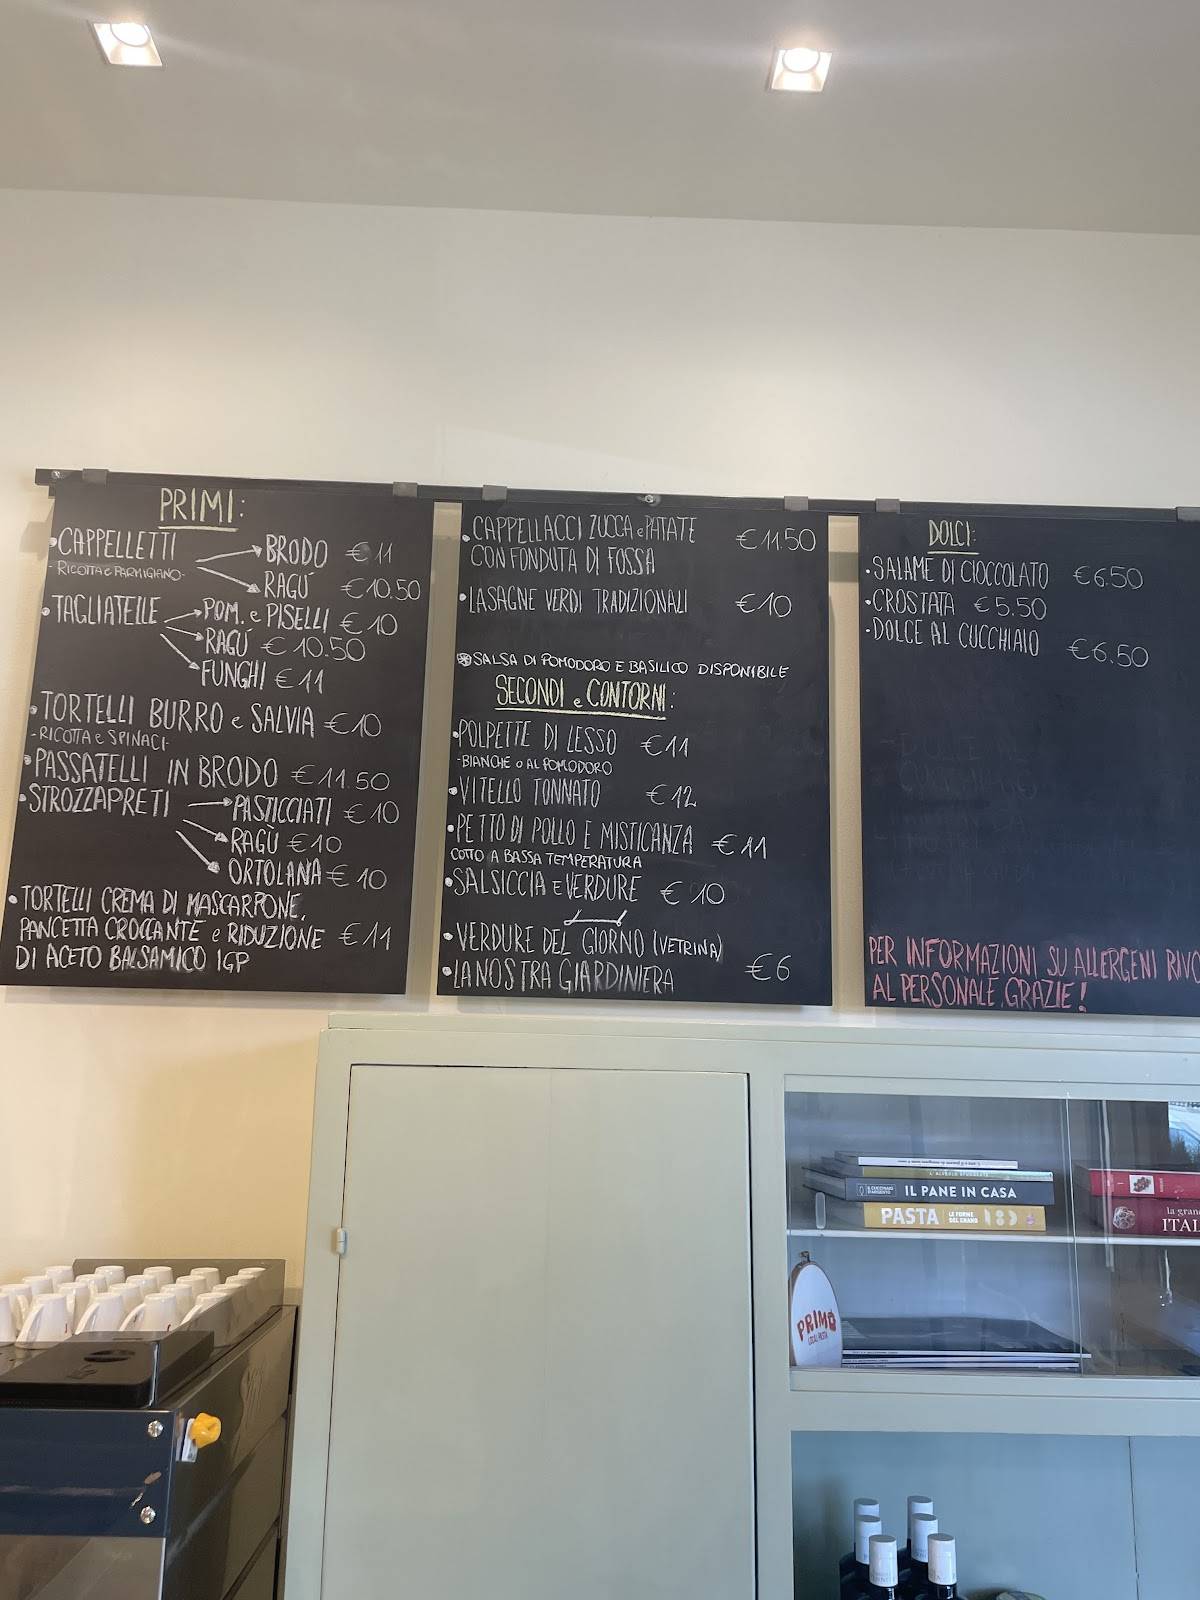 PRIMI:
• CAPPELLETTI BRODO €11
- RICOTTA e PARMIGIANO - RAGÚ €10.50
• TAGLIATELLE POM. e PISELLI €10
RAGÚ €10.50
FUNGHI €11
• TORTELLI BURRO e SALVIA €10
- RICOTTA e SPINACI -
• PASSATELLI IN BRODO €11.50
• STROZZAPRETI PASTICCIATI €10
RAGÙ €10
ORTOLANA €10
• TORTELLI CREMA DI MASCARPONE,
PANCETTA CROCCANTE e RIDUZIONE €11
DI ACETO BALSAMICO IGP
• CAPPELLACCI ZUCCA e PATATE €11.50
CON FONDUTA DI FOSSA
• LASAGNE VERDI TRADIZIONALI €10
SALSA DI POMODORO E BASILICO DISPONIBILE
SECONDI e CONTORNI:
• POLPETTE DI LESSO €11
- BIANCHE O AL POMODORO
• VITELLO TONNATO €12
• PETTO DI POLLO E MISTICANZA €11
COTTO A BASSA TEMPERATURA
• SALSICCIA e VERDURE €10
• VERDURE DEL GIORNO (VETRINA)
• LA NOSTRA GIARDINIERA €6
DOLCI:
• SALAME DI CIOCCOLATO €6.50
• CROSTATA €5.50
• DOLCE AL CUCCHIAIO €6.50
PER INFORMAZIONI SU ALLERGENI RIVO
AL PERSONALE, GRAZIE!
IL PANE IN CASA
PASTA LE FORME DEL GRANO
la gran
ITAL
PRIMO
LOCAL PASTA